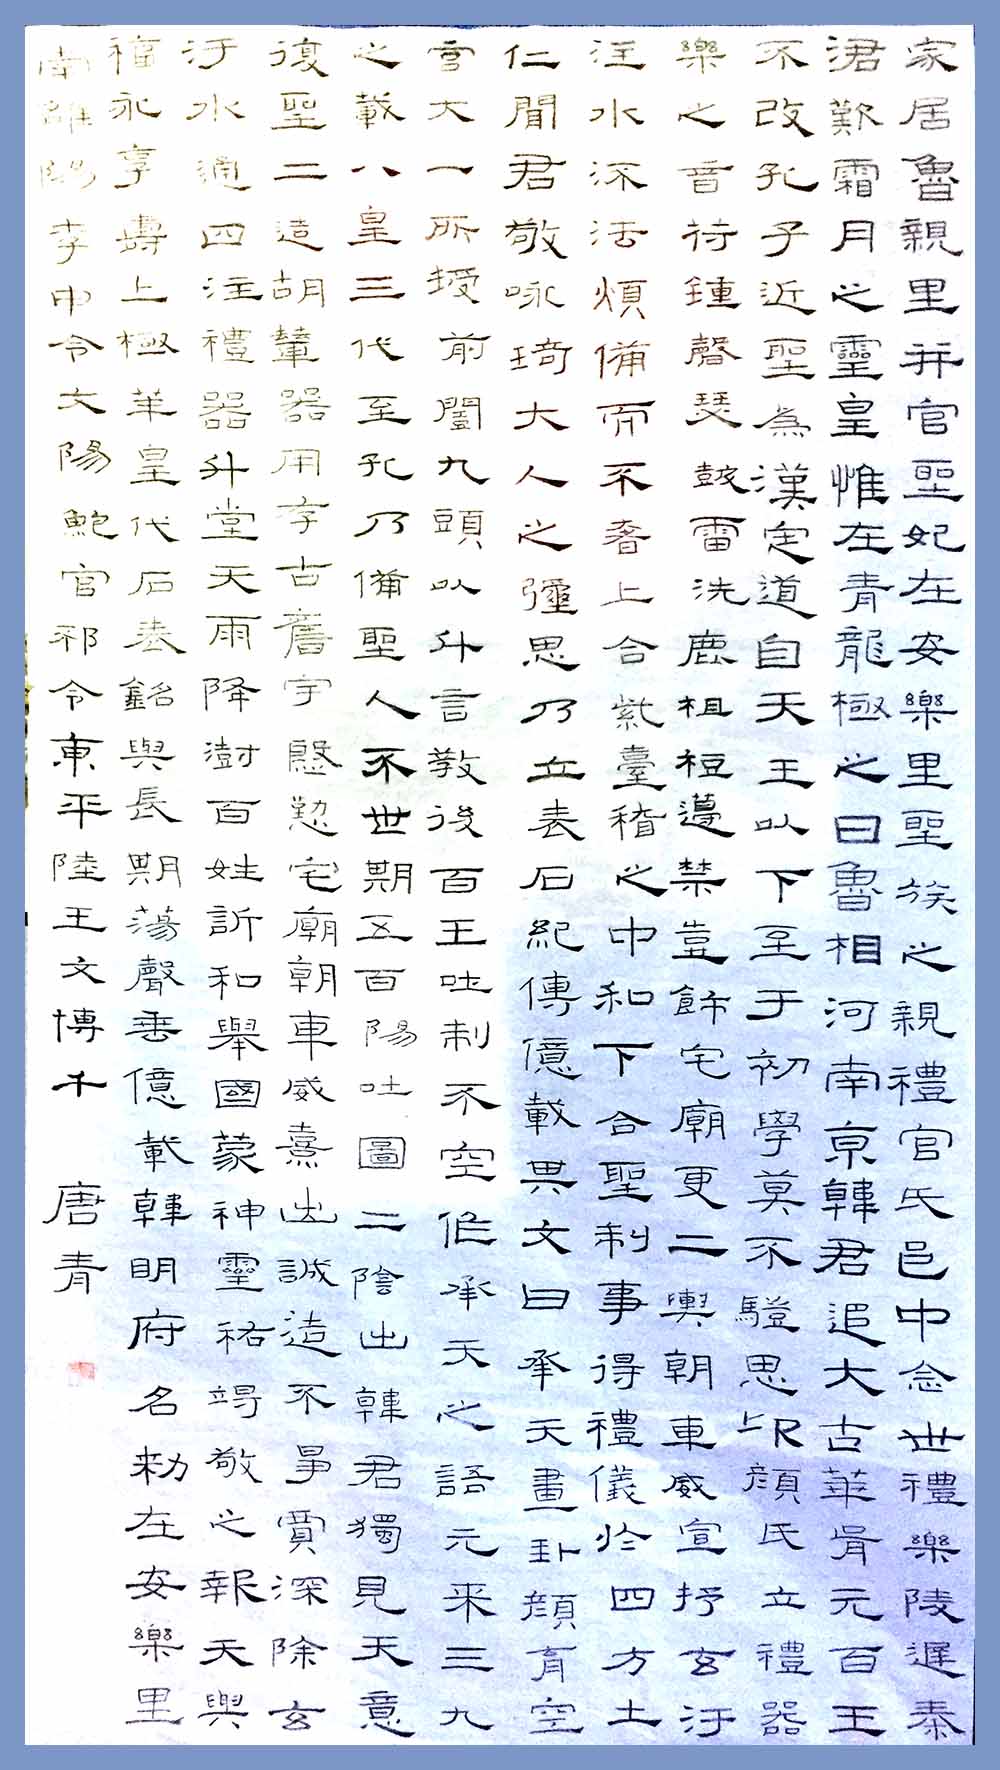 家居魯親里并官聖妃在安樂里聖族之親禮官氏邑中念世禮樂陵遲秦
君歎霜月之靈皇惟在青龍極之日魯相河南京韓君追大古華胥元百王
不改孔子近聖為漢定道自天王以下至于初學莫不驗思卬顏氏立禮器
樂之音符鍾磬瑟鼓雷洗鹿柤梪籩禁壹飾宅廟更二輿朝車威宣抒玄汙
注水涿法煩備而不奢上合紫臺稽之中和下合聖制事得禮儀於四方土
仁聞君敬咏琦大人之彊思乃立表石紀傳億載其文曰承天畫卦顏育空
言大一所授前闓九頭以斗言教後百王吐制不空作承天之語元來三九
之載八皇三代至孔乃備聖人不世期五百陽吐圖二陰出韓君獨見天意
復聖二造胡輦器用存古舊宇慇懃宅廟朝車威熹出誠造不爭賈深除玄
汙水通四注禮器升堂天雨降澍百姓訢和舉國蒙神靈祐竭敬之報天與
福永享壽上極華皇代石表銘與長期蕩聲垂億載韓明府名勅在安樂里
南雒陽李申令文陽鮑官祁令東平陸王文博千 唐青